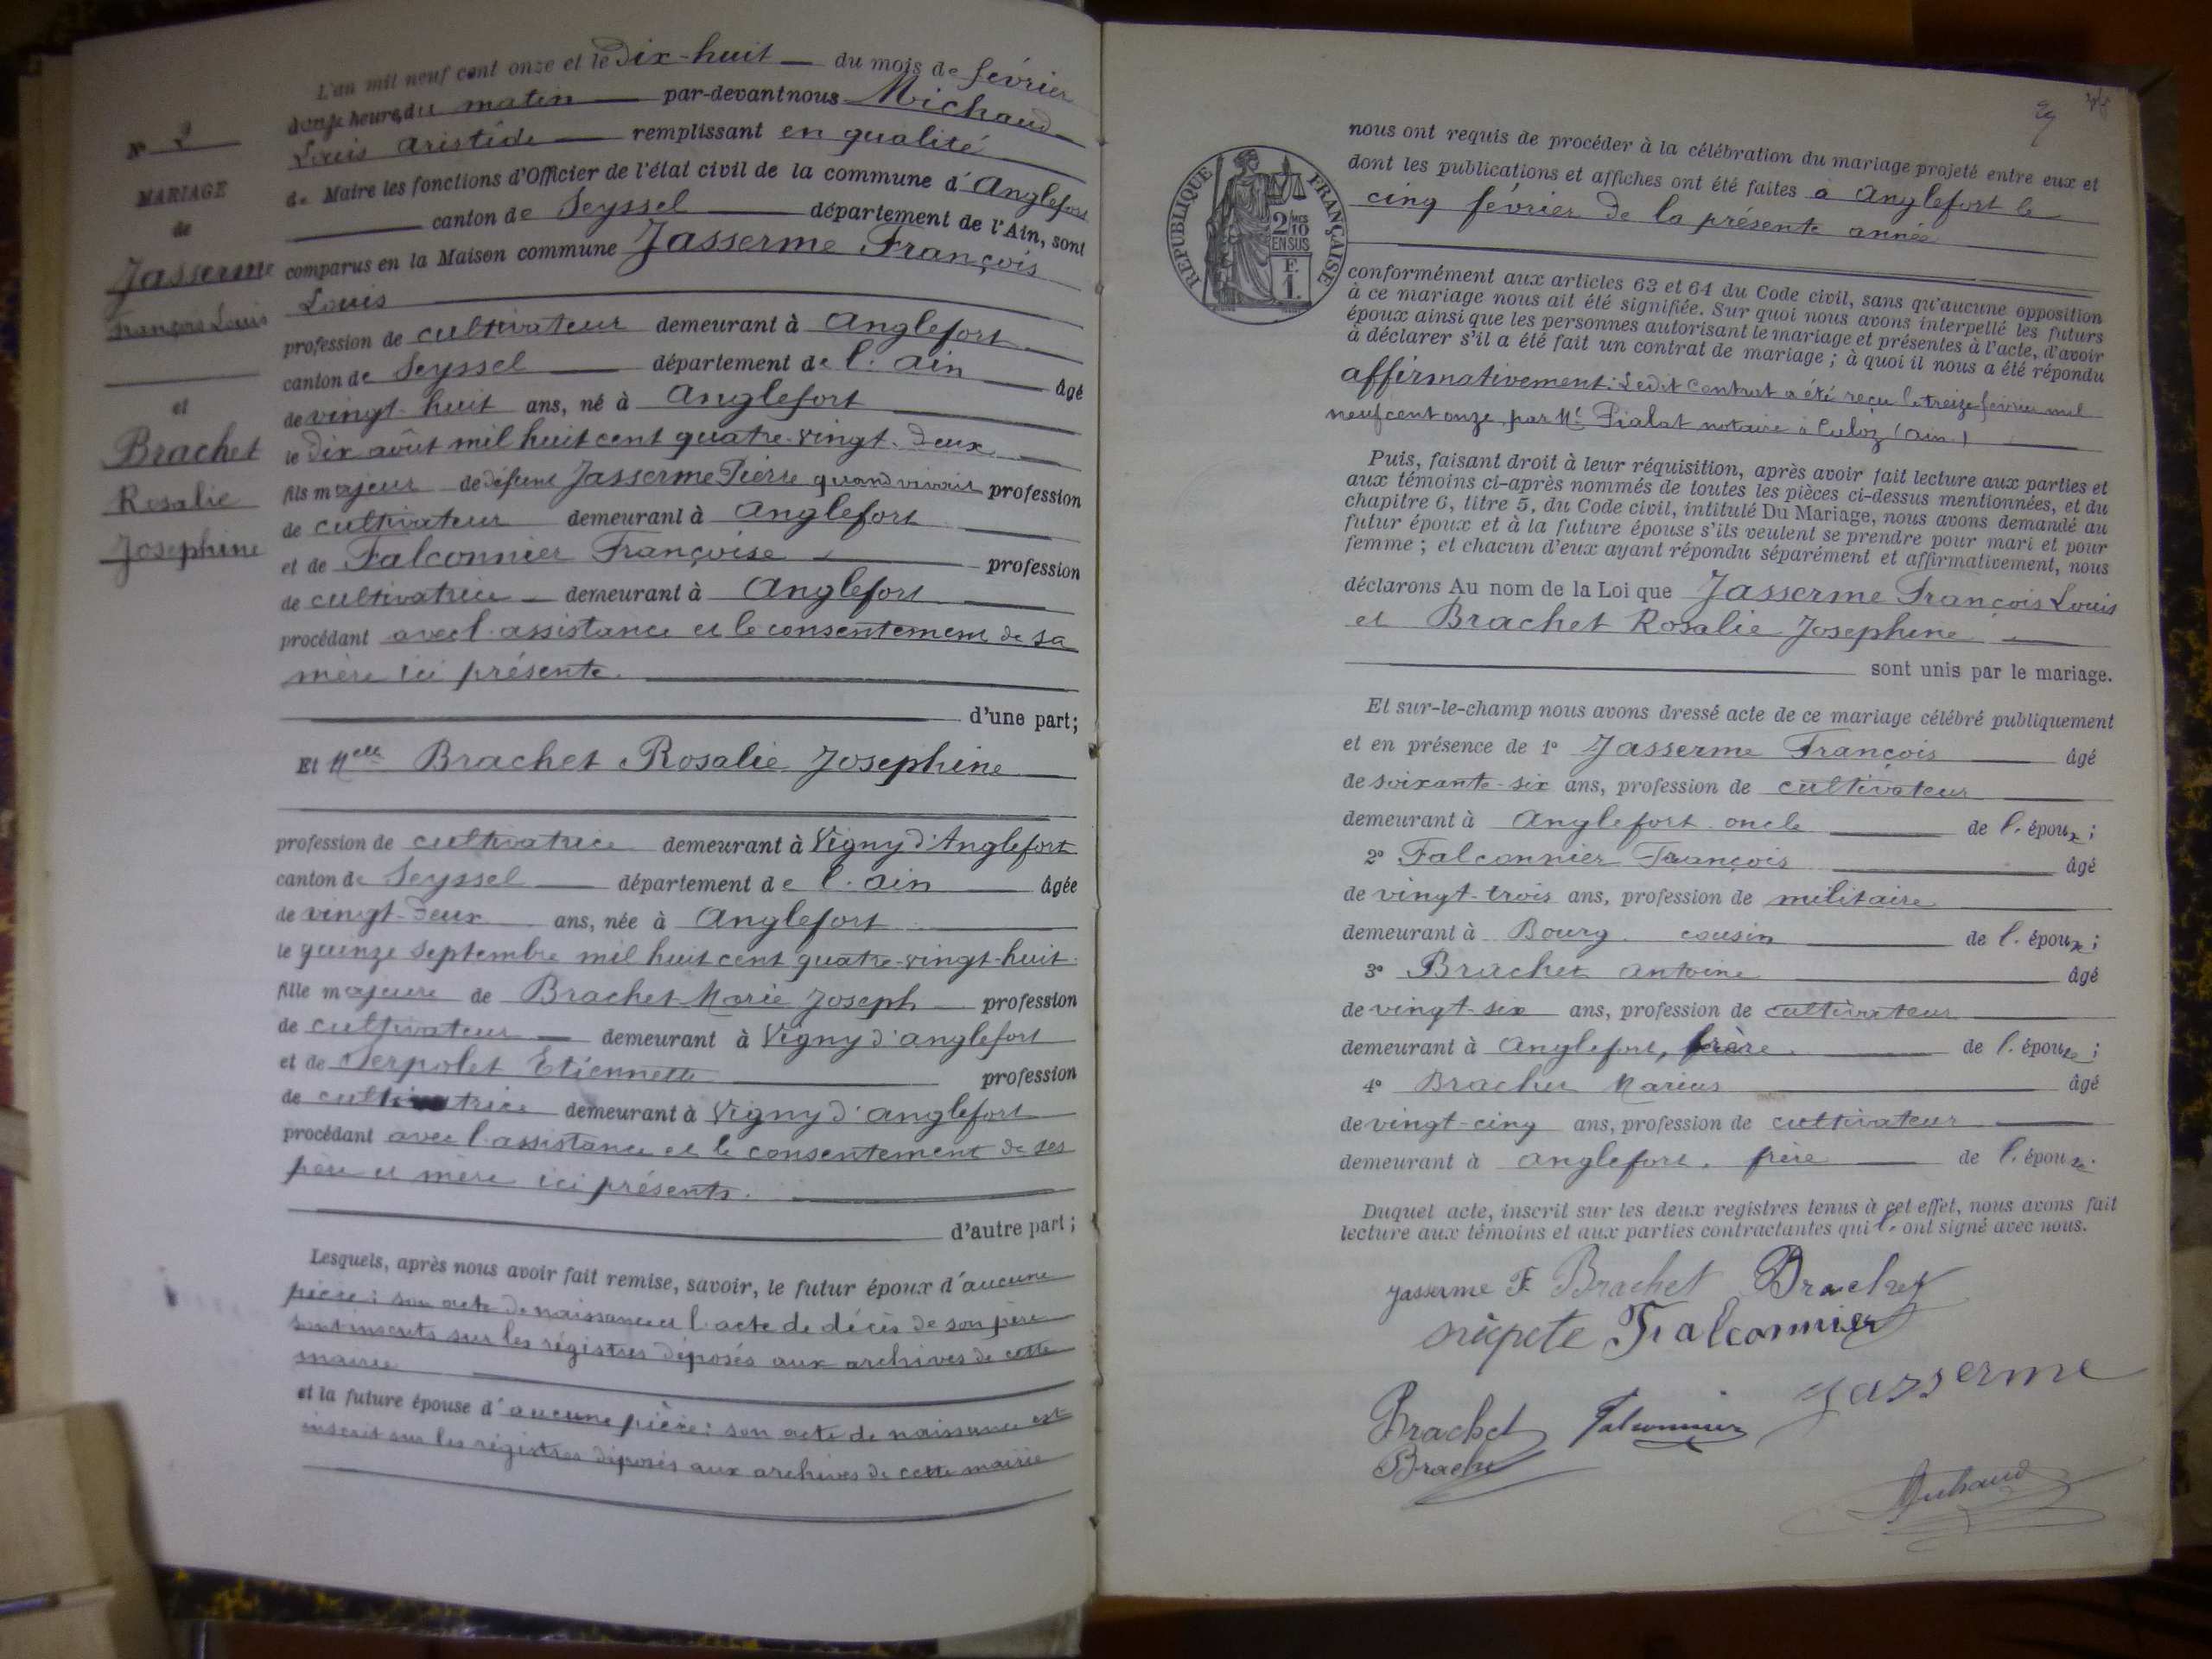 L'an mil neuf cent onze et le Dix-huit du mois de février
heure du matin par-devant nous Michaud
Louis Aristide remplissant en qualité
de Maire les fonctions d'Officier de l'état civil de la commune d'Anglefort
canton de Seyssel département de l'Ain, sont
comparus en la Maison commune Jasserme François
Louis
profession de cultivateur demeurant à Anglefort
canton de Seyssel département de l'Ain âgé
de vingt-huit ans, né à Anglefort
le Dix août mil huit cent quatre-vingt-deux
fils majeur de défunt Jasserme Pierre quand vivait profession
de cultivateur demeurant à Anglefort
et de Falconnier Françoise profession
de cultivatrice demeurant à Anglefort
procédant avec l'assistance et le consentement de sa
mère ici présente.
d'une part;
Et Melle Brachet Rosalie Josephine
profession de cultivatrice demeurant à Vigny d'Anglefort
canton de Seyssel département de l'Ain âgée
de vingt-deux ans, née à Anglefort
le quinze septembre mil huit cent quatre-vingt-huit
fille majeure de Brachet Marie Joseph profession
de cultivateur demeurant à Vigny d'Anglefort
et de Serpolet Etiennette profession
de cultivatrice demeurant à Vigny d'Anglefort
procédant avec l'assistance et le consentement de ses
père et mère ici présents.
d'autre part;
Lesquels, après nous avoir fait remise, savoir, le futur époux d'aucune
pièce: son acte de naissance et l'acte de décès de son père
sont inscrits sur les régistres déposés aux archives de cette
mairie
et la future épouse d'aucune pièce: son acte de naissance est
inscrit sur les régistres déposés aux archives de cette mairie
N°
MARIAGE
de
Jasserme
François Louis
et
Brachet
Rosalie
Josephine
RÉPUBLIQUE FRANÇAISE
2/10
MES
EN SUS
F.
1.
nous ont requis de procéder à la célébration du mariage projeté entre eux et
dont les publications et affiches ont été faites à Anglefort le
cinq février de la présente année
conformément aux articles 63 et 64 du Code civil, sans qu'aucune opposition
à ce mariage nous ait été signifiée. Sur quoi nous avons interpellé les futurs
époux ainsi que les personnes autorisant le mariage et présentes à l'acte, d'avoir
à déclarer s'il a été fait un contrat de mariage; à quoi il nous a été répondu
affirmativement: Ledit contrat a été reçu le treize février mil
neuf cent onze par Me Pialat notaire à Culoz (Ain)
Puis, faisant droit à leur réquisition, après avoir fait lecture aux parties et
aux témoins ci-après nommés de toutes les pièces ci-dessus mentionnées, et du
chapitre 6, titre 5, du Code civil, intitulé Du Mariage, nous avons demandé au
futur époux et à la future épouse s'ils veulent se prendre pour mari et pour
femme; et chacun d'eux ayant répondu séparément et affirmativement, nous
déclarons Au nom de la Loi que Jasserme François Louis
et Brachet Rosalie Josephine
sont unis par le mariage.
Et sur-le-champ nous avons dressé acte de ce mariage célébré publiquement
et en présence de 1° Jasserme François âgé
de soixante-six ans, profession de cultivateur
demeurant à Anglefort oncle de l'époux;
2° Falconnier François âgé
de vingt-trois ans, profession de militaire
demeurant à Bourg cousin de l'époux;
3° Brachet Antoine âgé
de vingt-six ans, profession de cultivateur
demeurant à Anglefort, frère de l'épouse;
4° Brachet Marius âgé
de vingt-cinq ans, profession de cultivateur
demeurant à Anglefort, frère de l'épouse.
Duquel acte, inscrit sur les deux registres tenus à cet effet, nous avons fait
lecture aux témoins et aux parties contractantes qui l'ont signé avec nous.
Jasserme F. Brachet Brachet
Falconnier
Jasserme
Brachet Falconnier
Brachet
Michaud